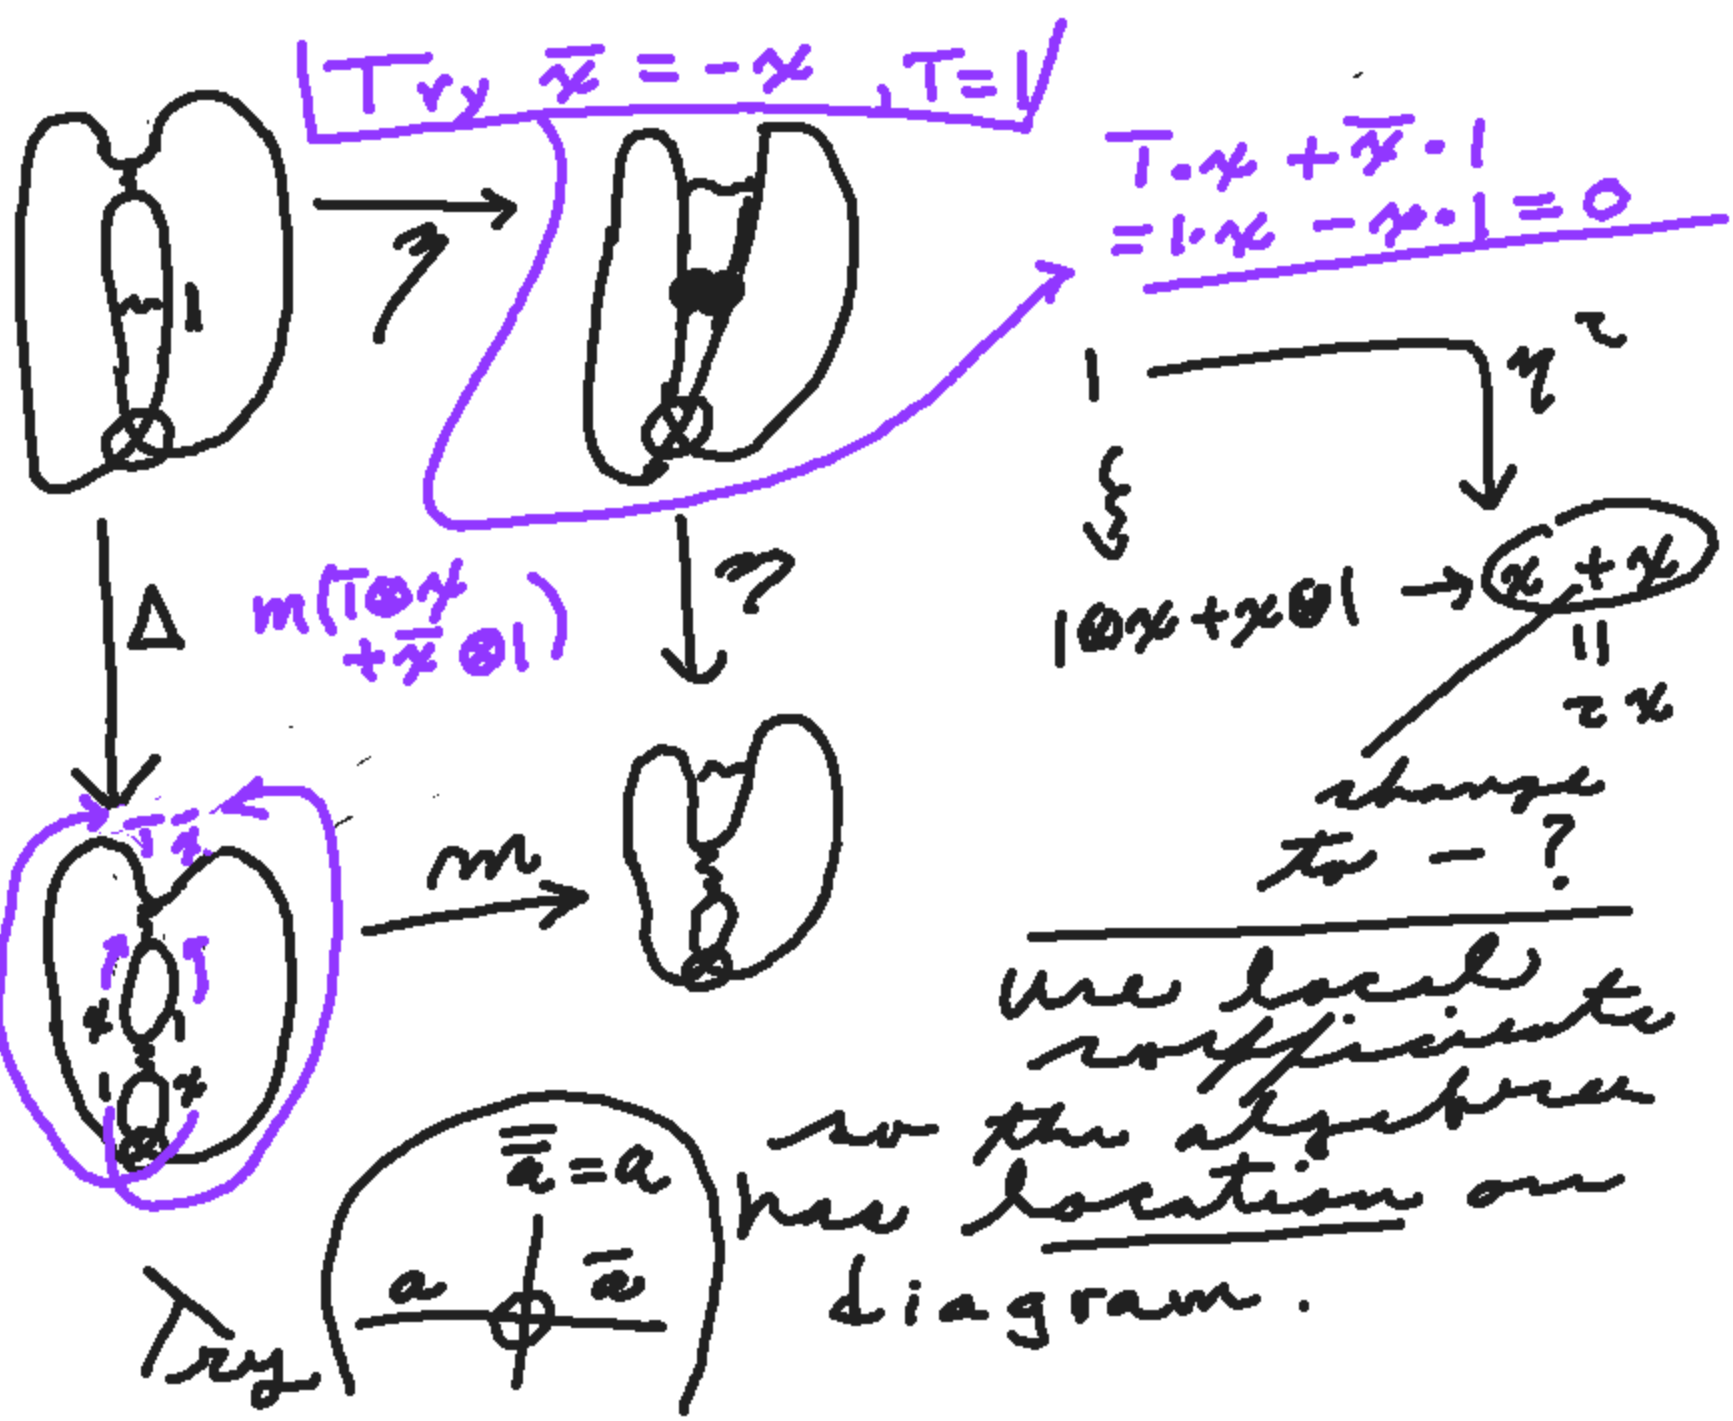 Try x̅ = -x , 1̅ = 1
1̅·x + x̅·1
= 1·x - x·1 = 0
η
1
1
η²
Δ
m(1̅⊗x
+ x̅⊗1)
η
1⊗x + x⊗1 → x + x
=
2x
change
to - ?
1̅ x̅
m
x 1
1 x
use local
coefficients
so the algebra
has location on
diagram.
Try
a̿ = a
a a̅